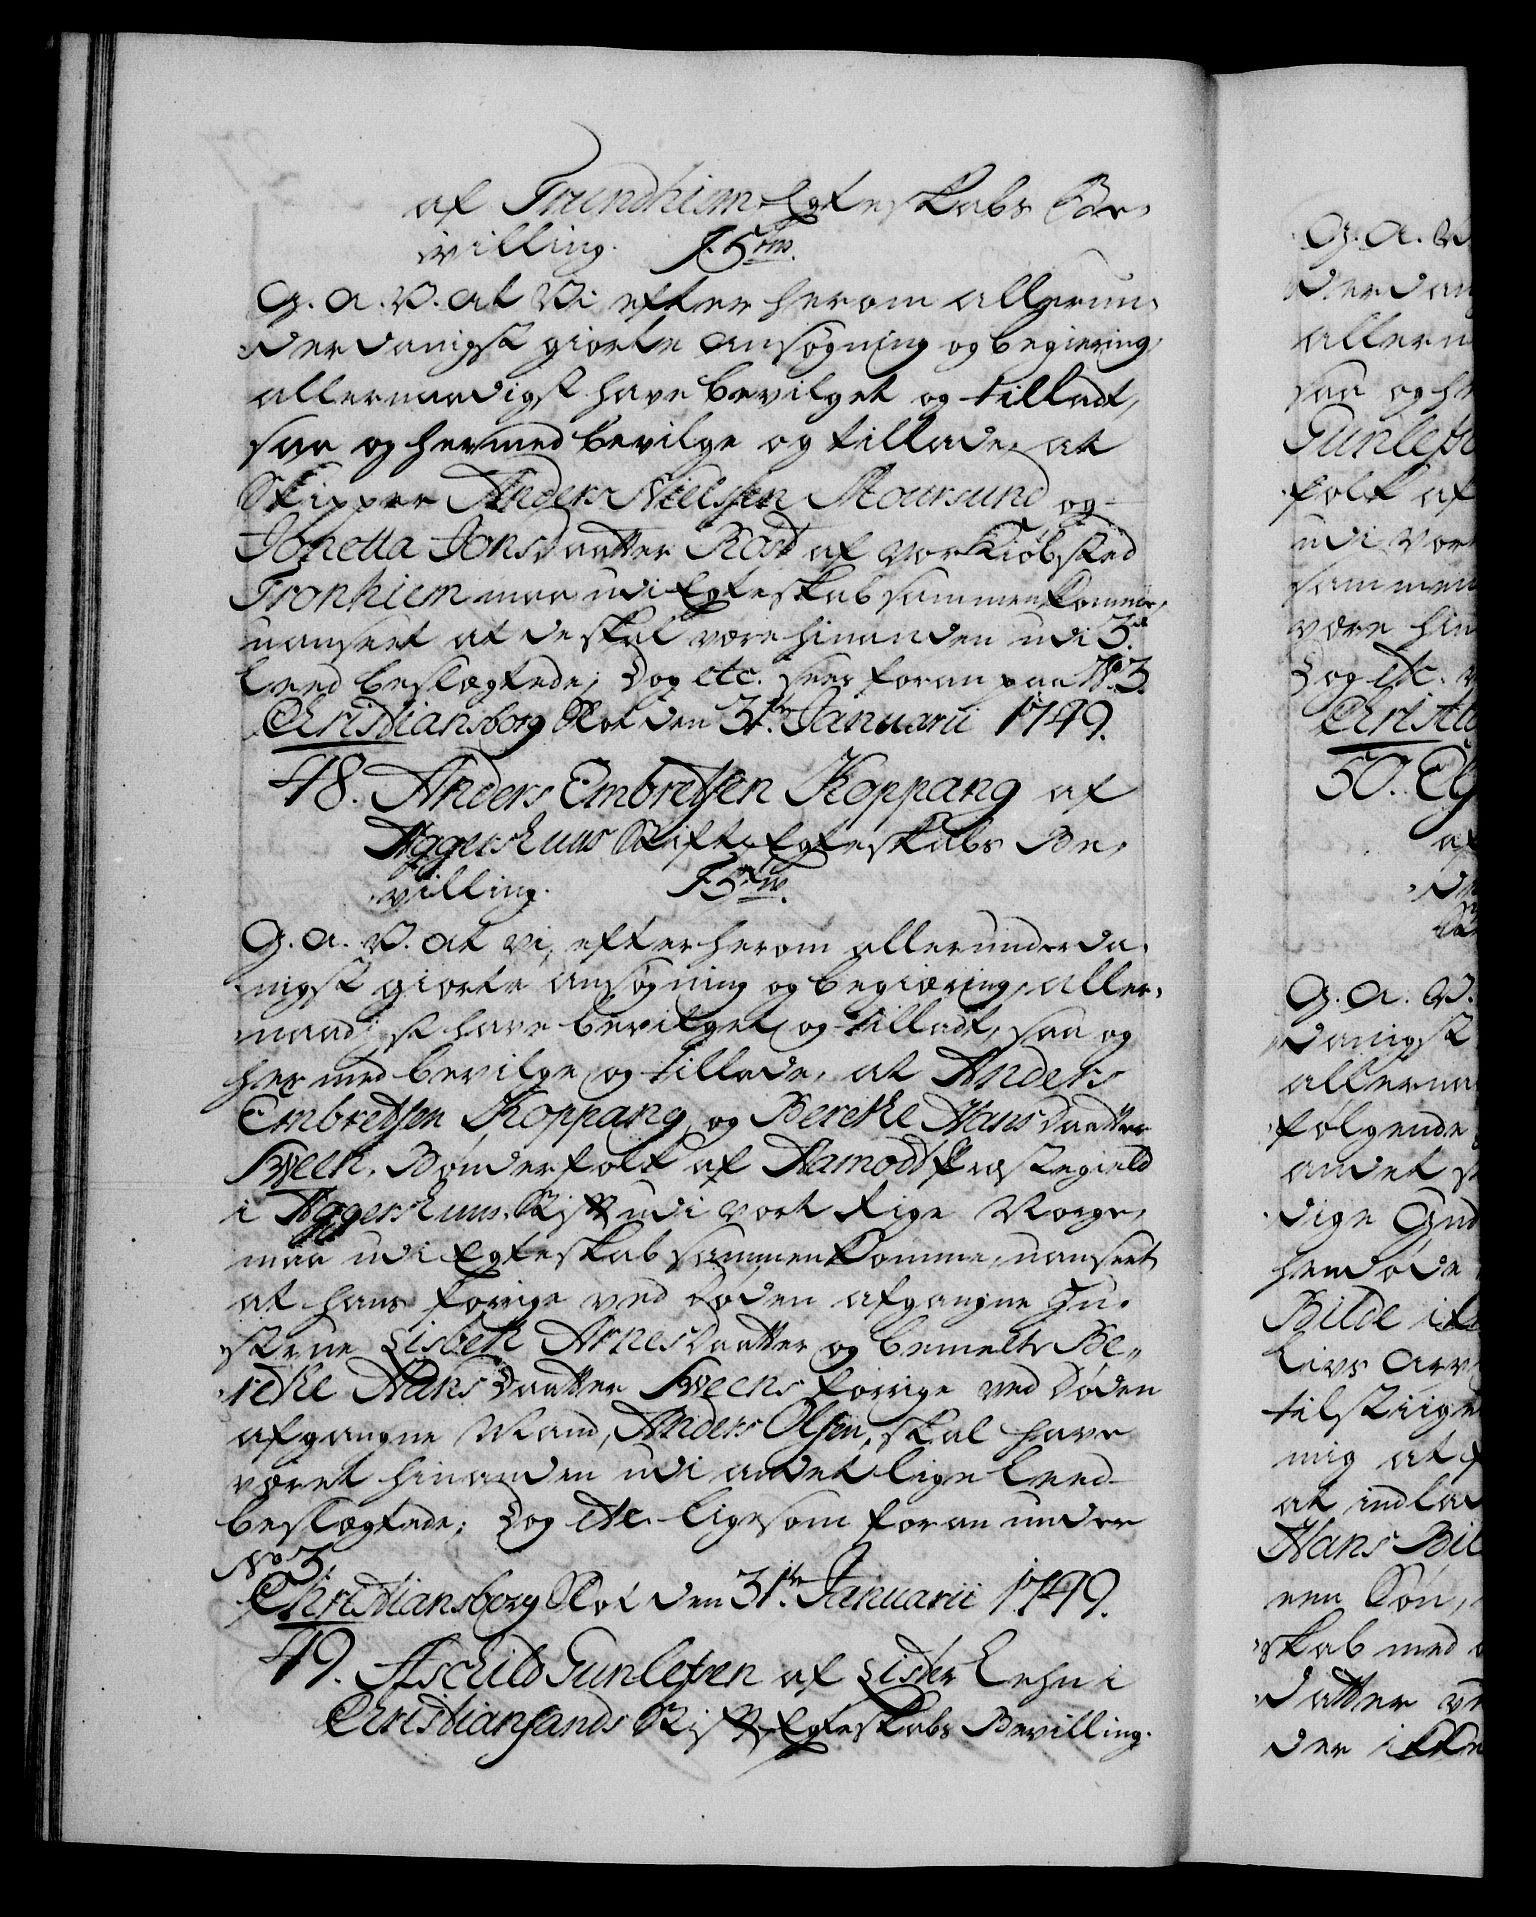 af Trundhiem Egteskabs Be-
villing. F. 5 rm.
G. A. V. at Vi efter herom allerun-
derdanigst giorte ansøgning og begiering,
allernaadigst have bevilget og tilladt,
saa og hermed bevilge og tillade, at
Skipper Anders Nielsen Moursund og
Jonetta Jonsdaatter Rod af vor Kiøbsted
Tronhiem maa udi Egteskab sammenkomme,
uanseet at de skal være hinanden udi 3de
Leed beslægtede; Dog etc. sees foran paa No 3.
Christiansborg Slot den 31te Januarii 1749.
48. Anders Embretsen Koppang af
Aggershuus Stift Egteskabs Be-
villing. F. 5 rm.
G. A. V. at vi, efter herom allerunderda-
nigst giorte ansøgning og begiæring, aller-
naadigst have bevilget og tilladt, saa og
hermed bevilge og tillade, at Anders
Embretsen Koppang og Berethe Hans daatter
Sveen, Bønderfolk af Aamodt Præstegield
i Aggershuus Stift udi vort Rige Norge,
maa udi Egteskab sammenkomme, uanseet
at hans forrige ved Døden afgangne Hu-
strue Lisbeth Arnesdaatter og bemelte Be-
rethe Hansdaatter Sveens forrige ved Døden
afgangne Mand, Anders Olsen, skal have
været hinanden udi andet lige Leed
beslægtede; Dog etc. ligesom foran under
No 3.
Christiansborg Slot den 31te Januarii 1749.
49. Aschild Gunlefsen af Lister Lehn i
Christiansands Stift Egteskabs Bevilling.
G. A. V.
derdan
allern
saa og he
Gunlefs
folk af
udi vor
sammen
være hin
Dog etc.
Christia
50.
af
G. A. V.
danigst
allerna
følgende
andet
dige Gud
hendøde
Bilde
Livs arv
tilstiige
mig at
at indlad
Hans Bil
een Søn,
skab med
datter
der ikke